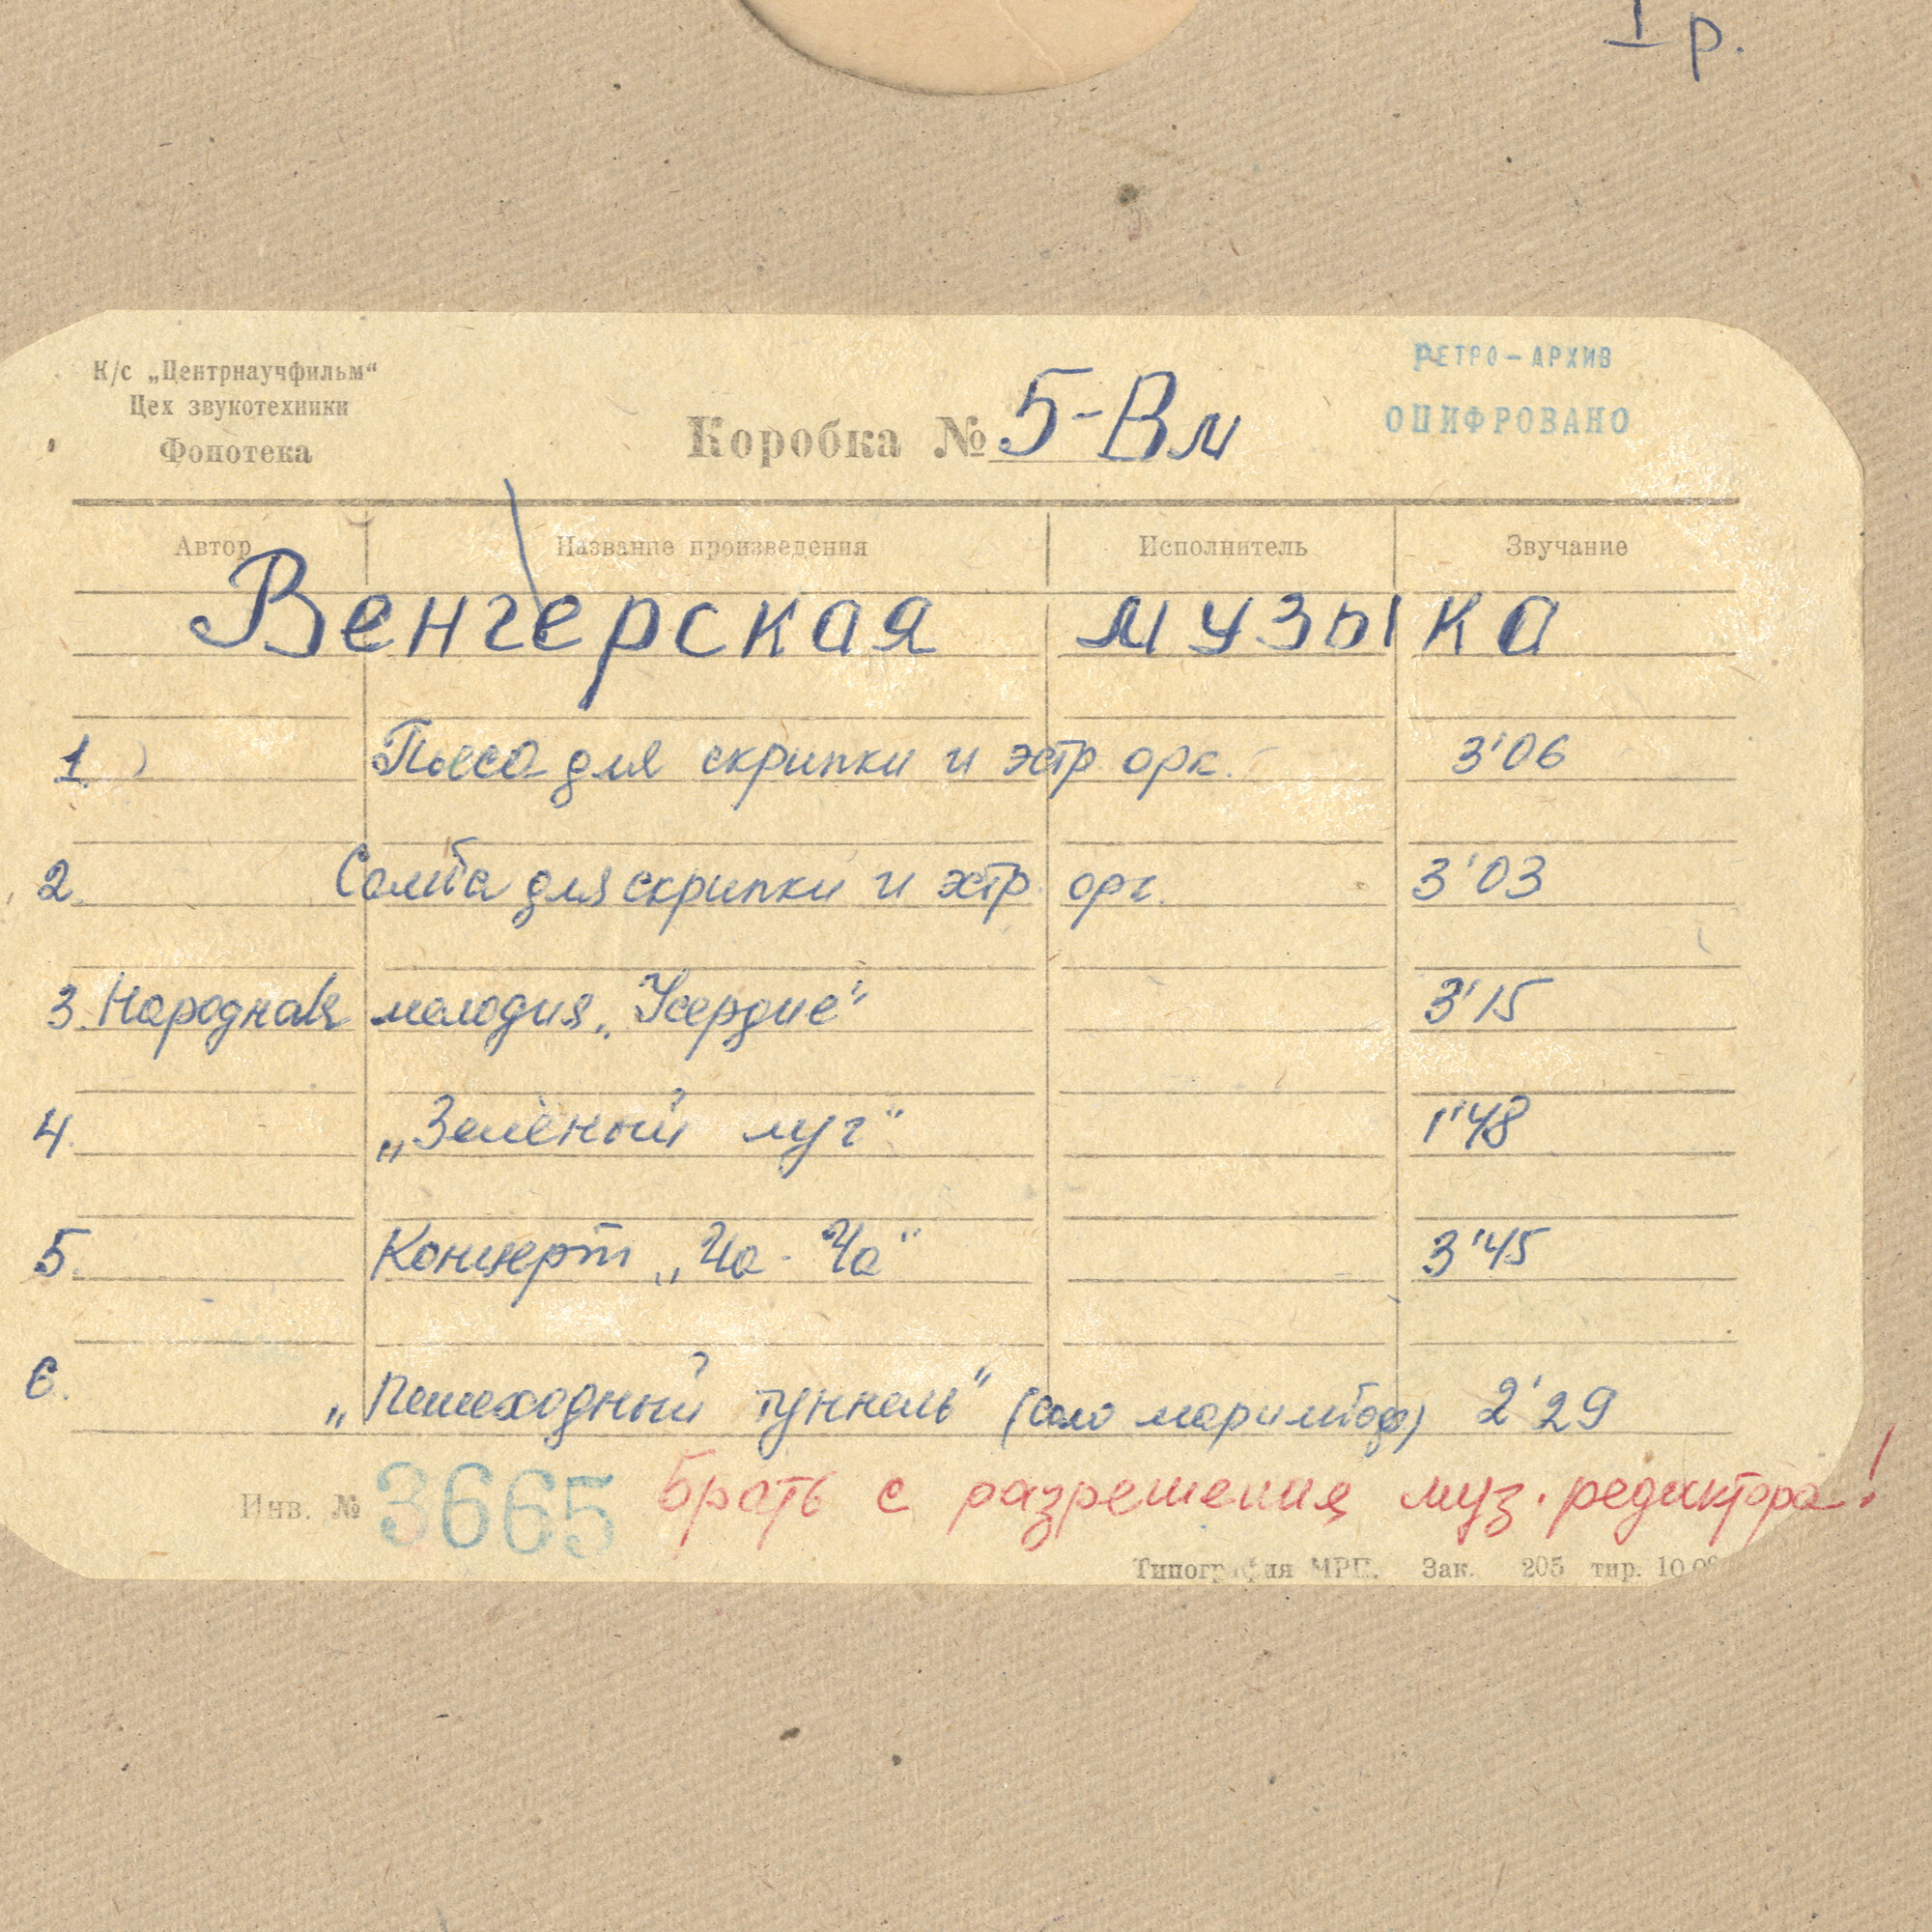 I р.
К/с „Центрнаучфильм“
Цех звукотехники
Фонотека
Коробка № 5-Вм
РЕТРО-АРХИВ
ОЦИФРОВАНО
Автор Название произведения Исполнитель Звучание
Венгерская музыка
1. Пьеса для скрипки и эстр орк. 3'06
2. Самба для скрипки и эстр. орк. 3'03
3. Народная мелодия „Усердие“ 3'15
4. „Зелёный луг“ 1'48
5. Концерт „Ча-Ча“ 3'45
6. „Пешеходный туннель“ (соло маримбоф) 2'29
Инв. № 3665 Брать с разрешения муз. редактора!
Типография МРП. Зак. 205 тир.